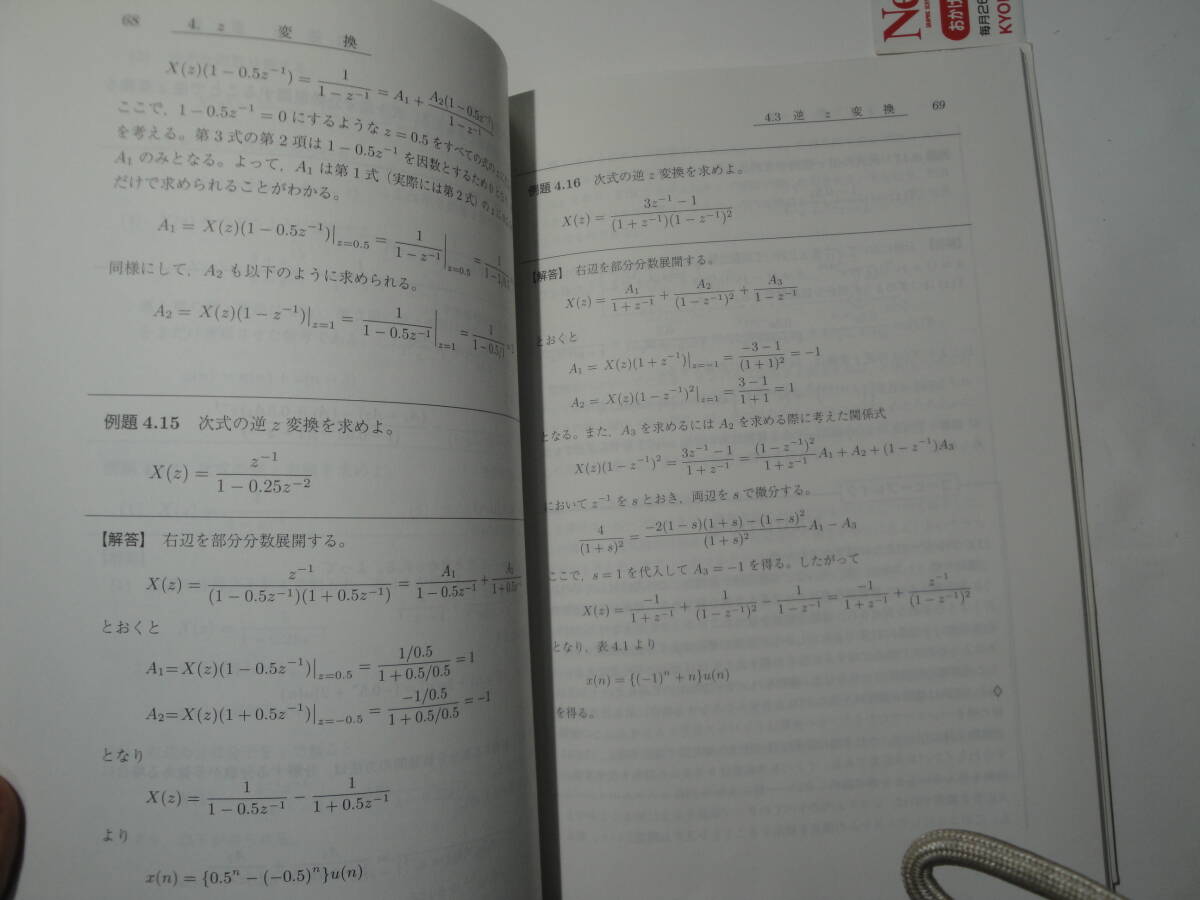 68 4. z 変 換
X(z)(1 − 0.5z⁻¹) = 1/(1 − z⁻¹) = A₁ + A₂(1−0.5z⁻¹)/(1 − z⁻¹)
ここで，1 − 0.5z⁻¹ = 0 にするような z = 0.5 をすべての式の
を考える。第 3 式の第 2 項は 1 − 0.5z⁻¹ を因数とするため 0
A₁ のみとなる。よって，A₁ は第 1 式（実際には第 2 式）の z
だけで求められることがわかる。
A₁ = X(z)(1 − 0.5z⁻¹)|z=0.5 = 1/(1 − z⁻¹)|z=0.5 =
同様にして，A₂ も以下のように求められる。
A₂ = X(z)(1 − z⁻¹)|z=1 = 1/(1 − 0.5z⁻¹)|z=1 = 1/(1−0.5/1)
例題 4.15 次式の逆 z 変換を求めよ。
X(z) = z⁻¹/(1 − 0.25z⁻²)
【解答】 右辺を部分分数展開する。
X(z) = z⁻¹/((1 − 0.5z⁻¹)(1 + 0.5z⁻¹)) = A₁/(1 − 0.5z⁻¹) + A₂/(1+0.5z
とおくと
A₁=X(z)(1 − 0.5z⁻¹)|z=0.5 = (1/0.5)/(1 + 0.5/0.5) = 1
A₂=X(z)(1 + 0.5z⁻¹)|z=−0.5 = (−1/0.5)/(1 + 0.5/0.5) = −1
となり
X(z) = 1/(1 − 0.5z⁻¹) − 1/(1 + 0.5z⁻¹)
より
x(n) = {0.5ⁿ − (−0.5)ⁿ}u(n)
4.3 逆 z 変 換 69
例題 4.16 次式の逆 z 変換を求めよ。
X(z) = (3z⁻¹ − 1)/((1 + z⁻¹)(1 − z⁻¹)²)
【解答】 右辺を部分分数展開する。
X(z) = A₁/(1 + z⁻¹) + A₂/(1 − z⁻¹)² + A₃/(1 − z⁻¹)
とおくと
A₁ = X(z)(1 + z⁻¹)|z=−1 = (−3 − 1)/(1 + 1)² = −1
A₂ = X(z)(1 − z⁻¹)²|z=1 = (3 − 1)/(1 + 1) = 1
となる。また，A₃ を求めるには A₂ を求める際に考えた関係式
X(z)(1 − z⁻¹)² = (3z⁻¹ − 1)/(1 + z⁻¹) = (1 − z⁻¹)²/(1 + z⁻¹) A₁ + A₂ + (1 − z⁻¹)A₃
において z⁻¹ を s とおき，両辺を s で微分する。
4/(1 + s)² = (−2(1 − s)(1 + s) − (1 − s)²)/(1 + s)² A₁ − A₃
ここで，s = 1 を代入して A₃ = −1 を得る。したがって
X(z) = −1/(1 + z⁻¹) + 1/(1 − z⁻¹)² − 1/(1 − z⁻¹) = −1/(1 + z⁻¹) + z⁻¹/(1 − z⁻¹)²
となり，表 4.1 より
x(n) = {(−1)ⁿ + n}u(n)
を得る。 ◇
Ne
おかげ
毎月26
KYOI